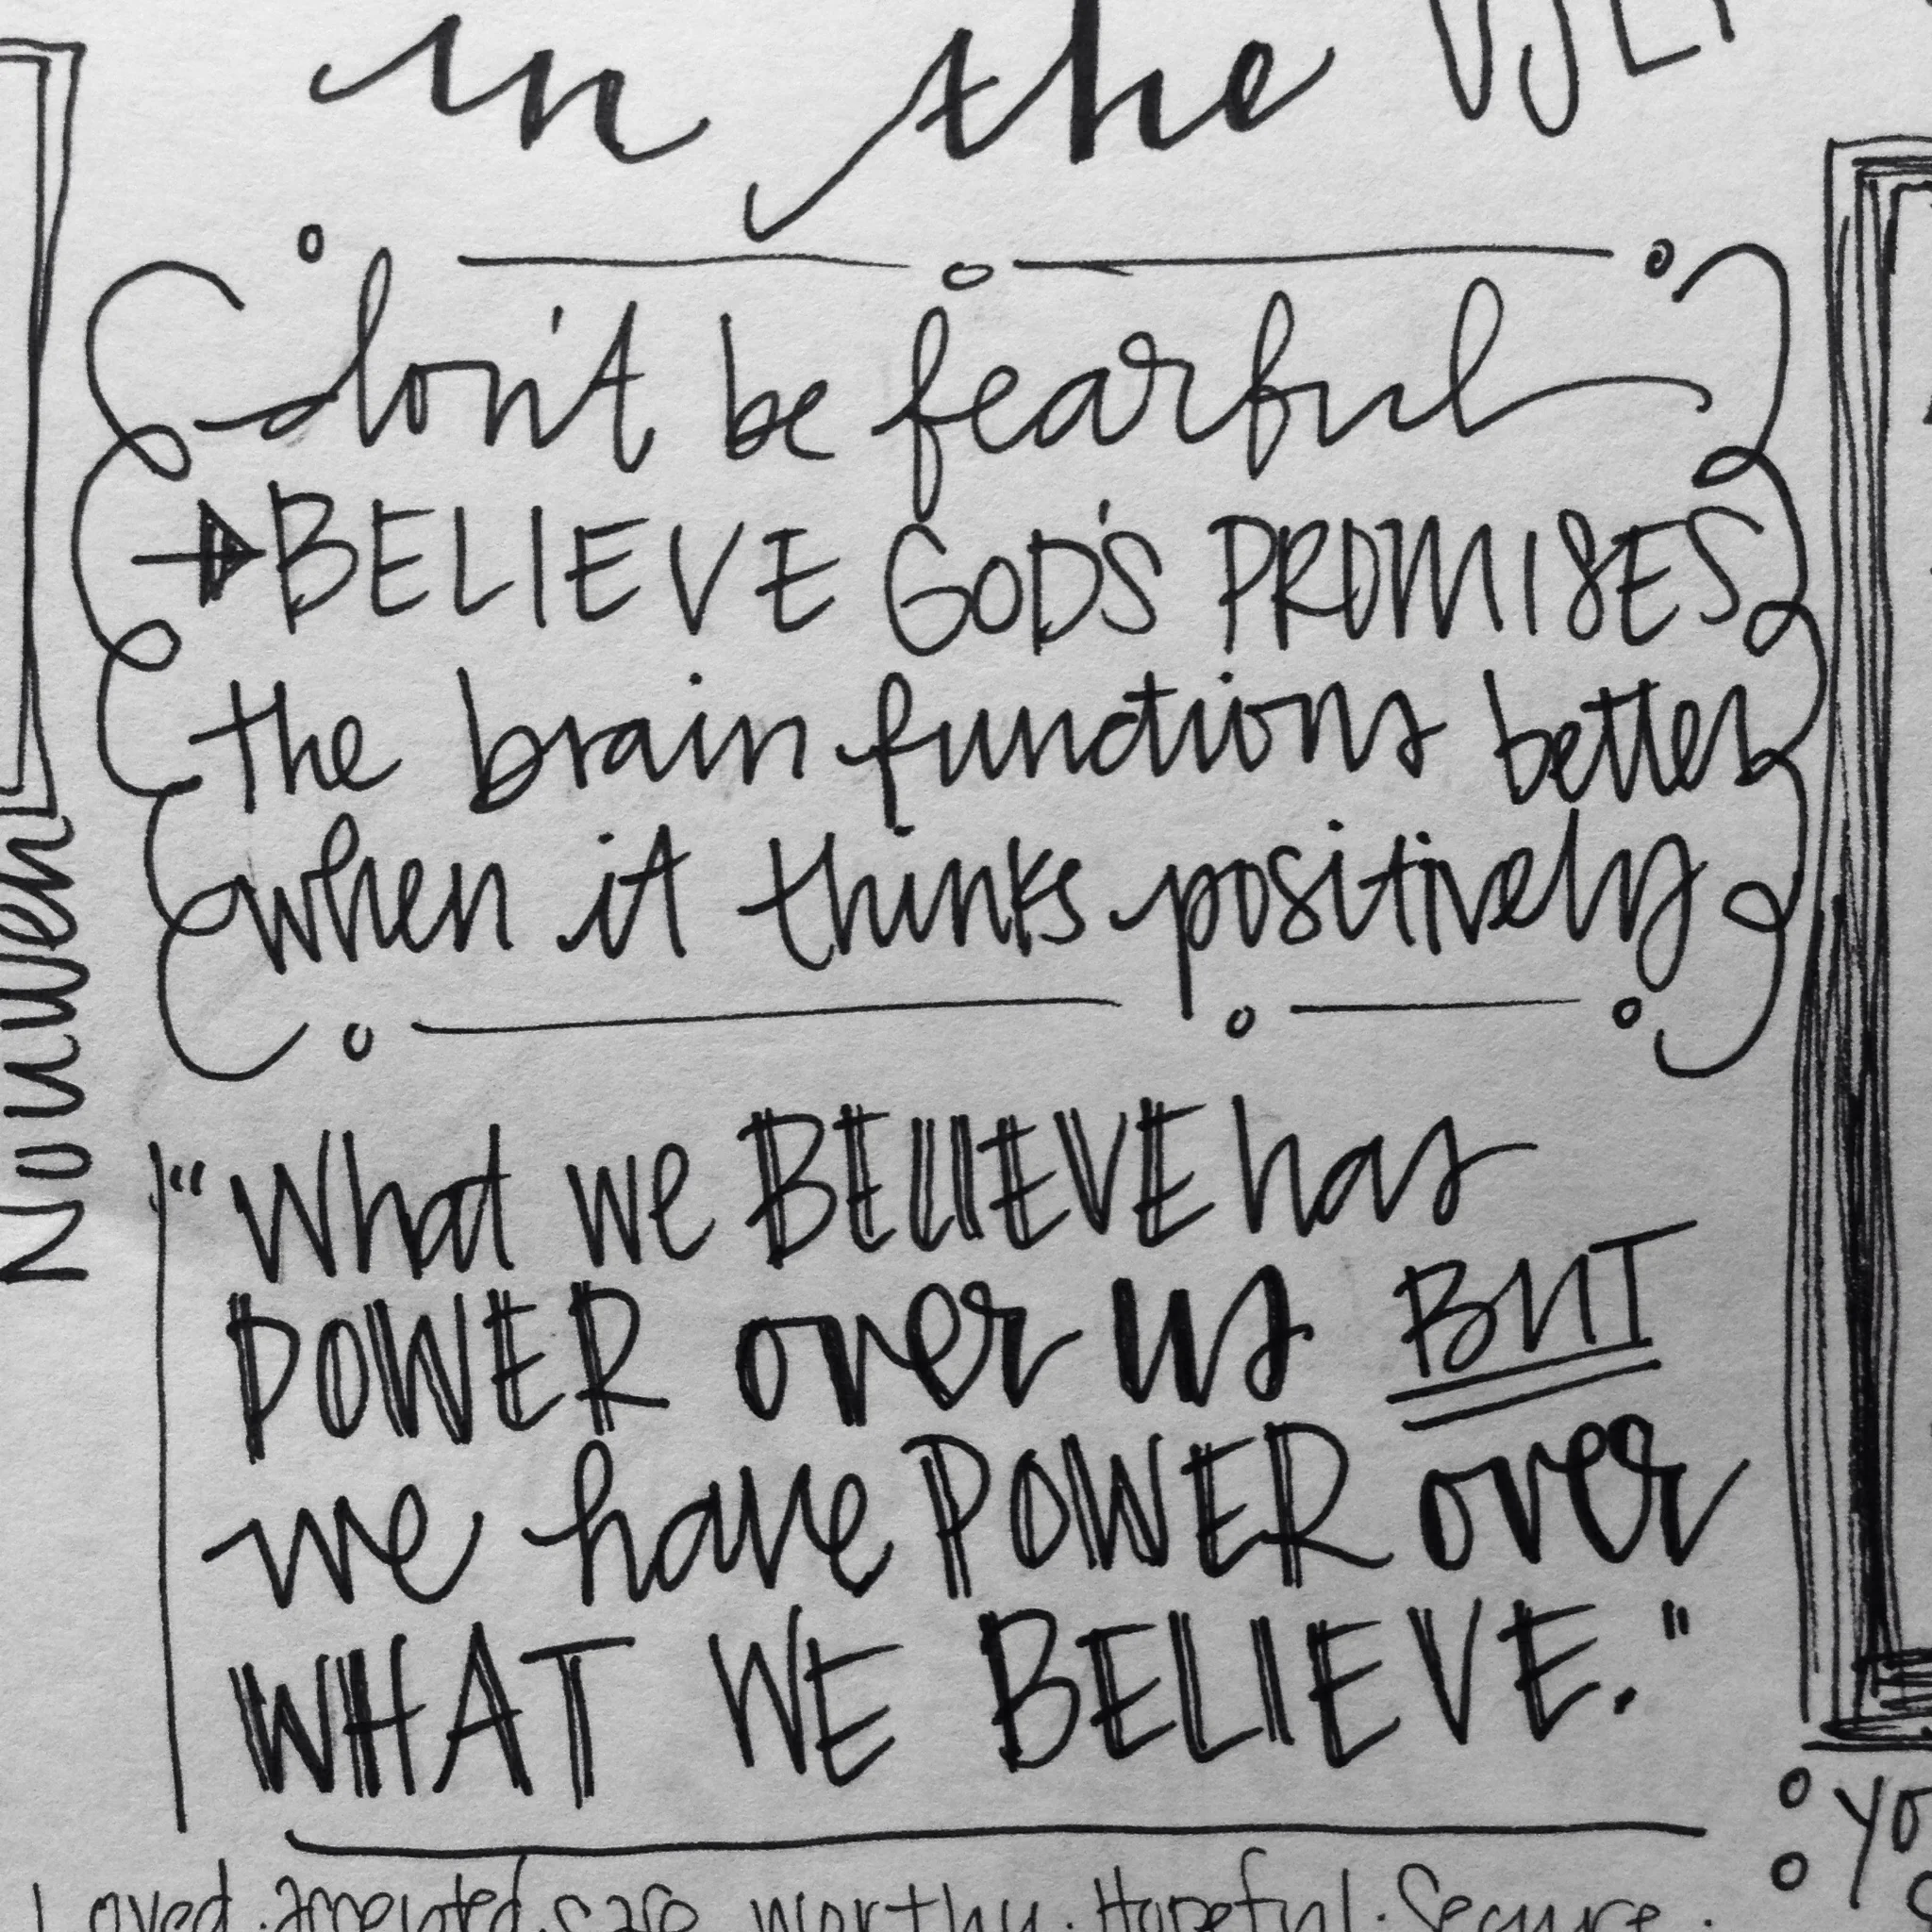 in the
don't be fearful
BELIEVE GOD'S PROMISES
the brain functions better
when it thinks positively
Nouwen
"What we BELIEVE has
POWER over us BUT
we have POWER over
WHAT WE BELIEVE."
Loved. accepted. safe. worthy. Hopeful. Secure.